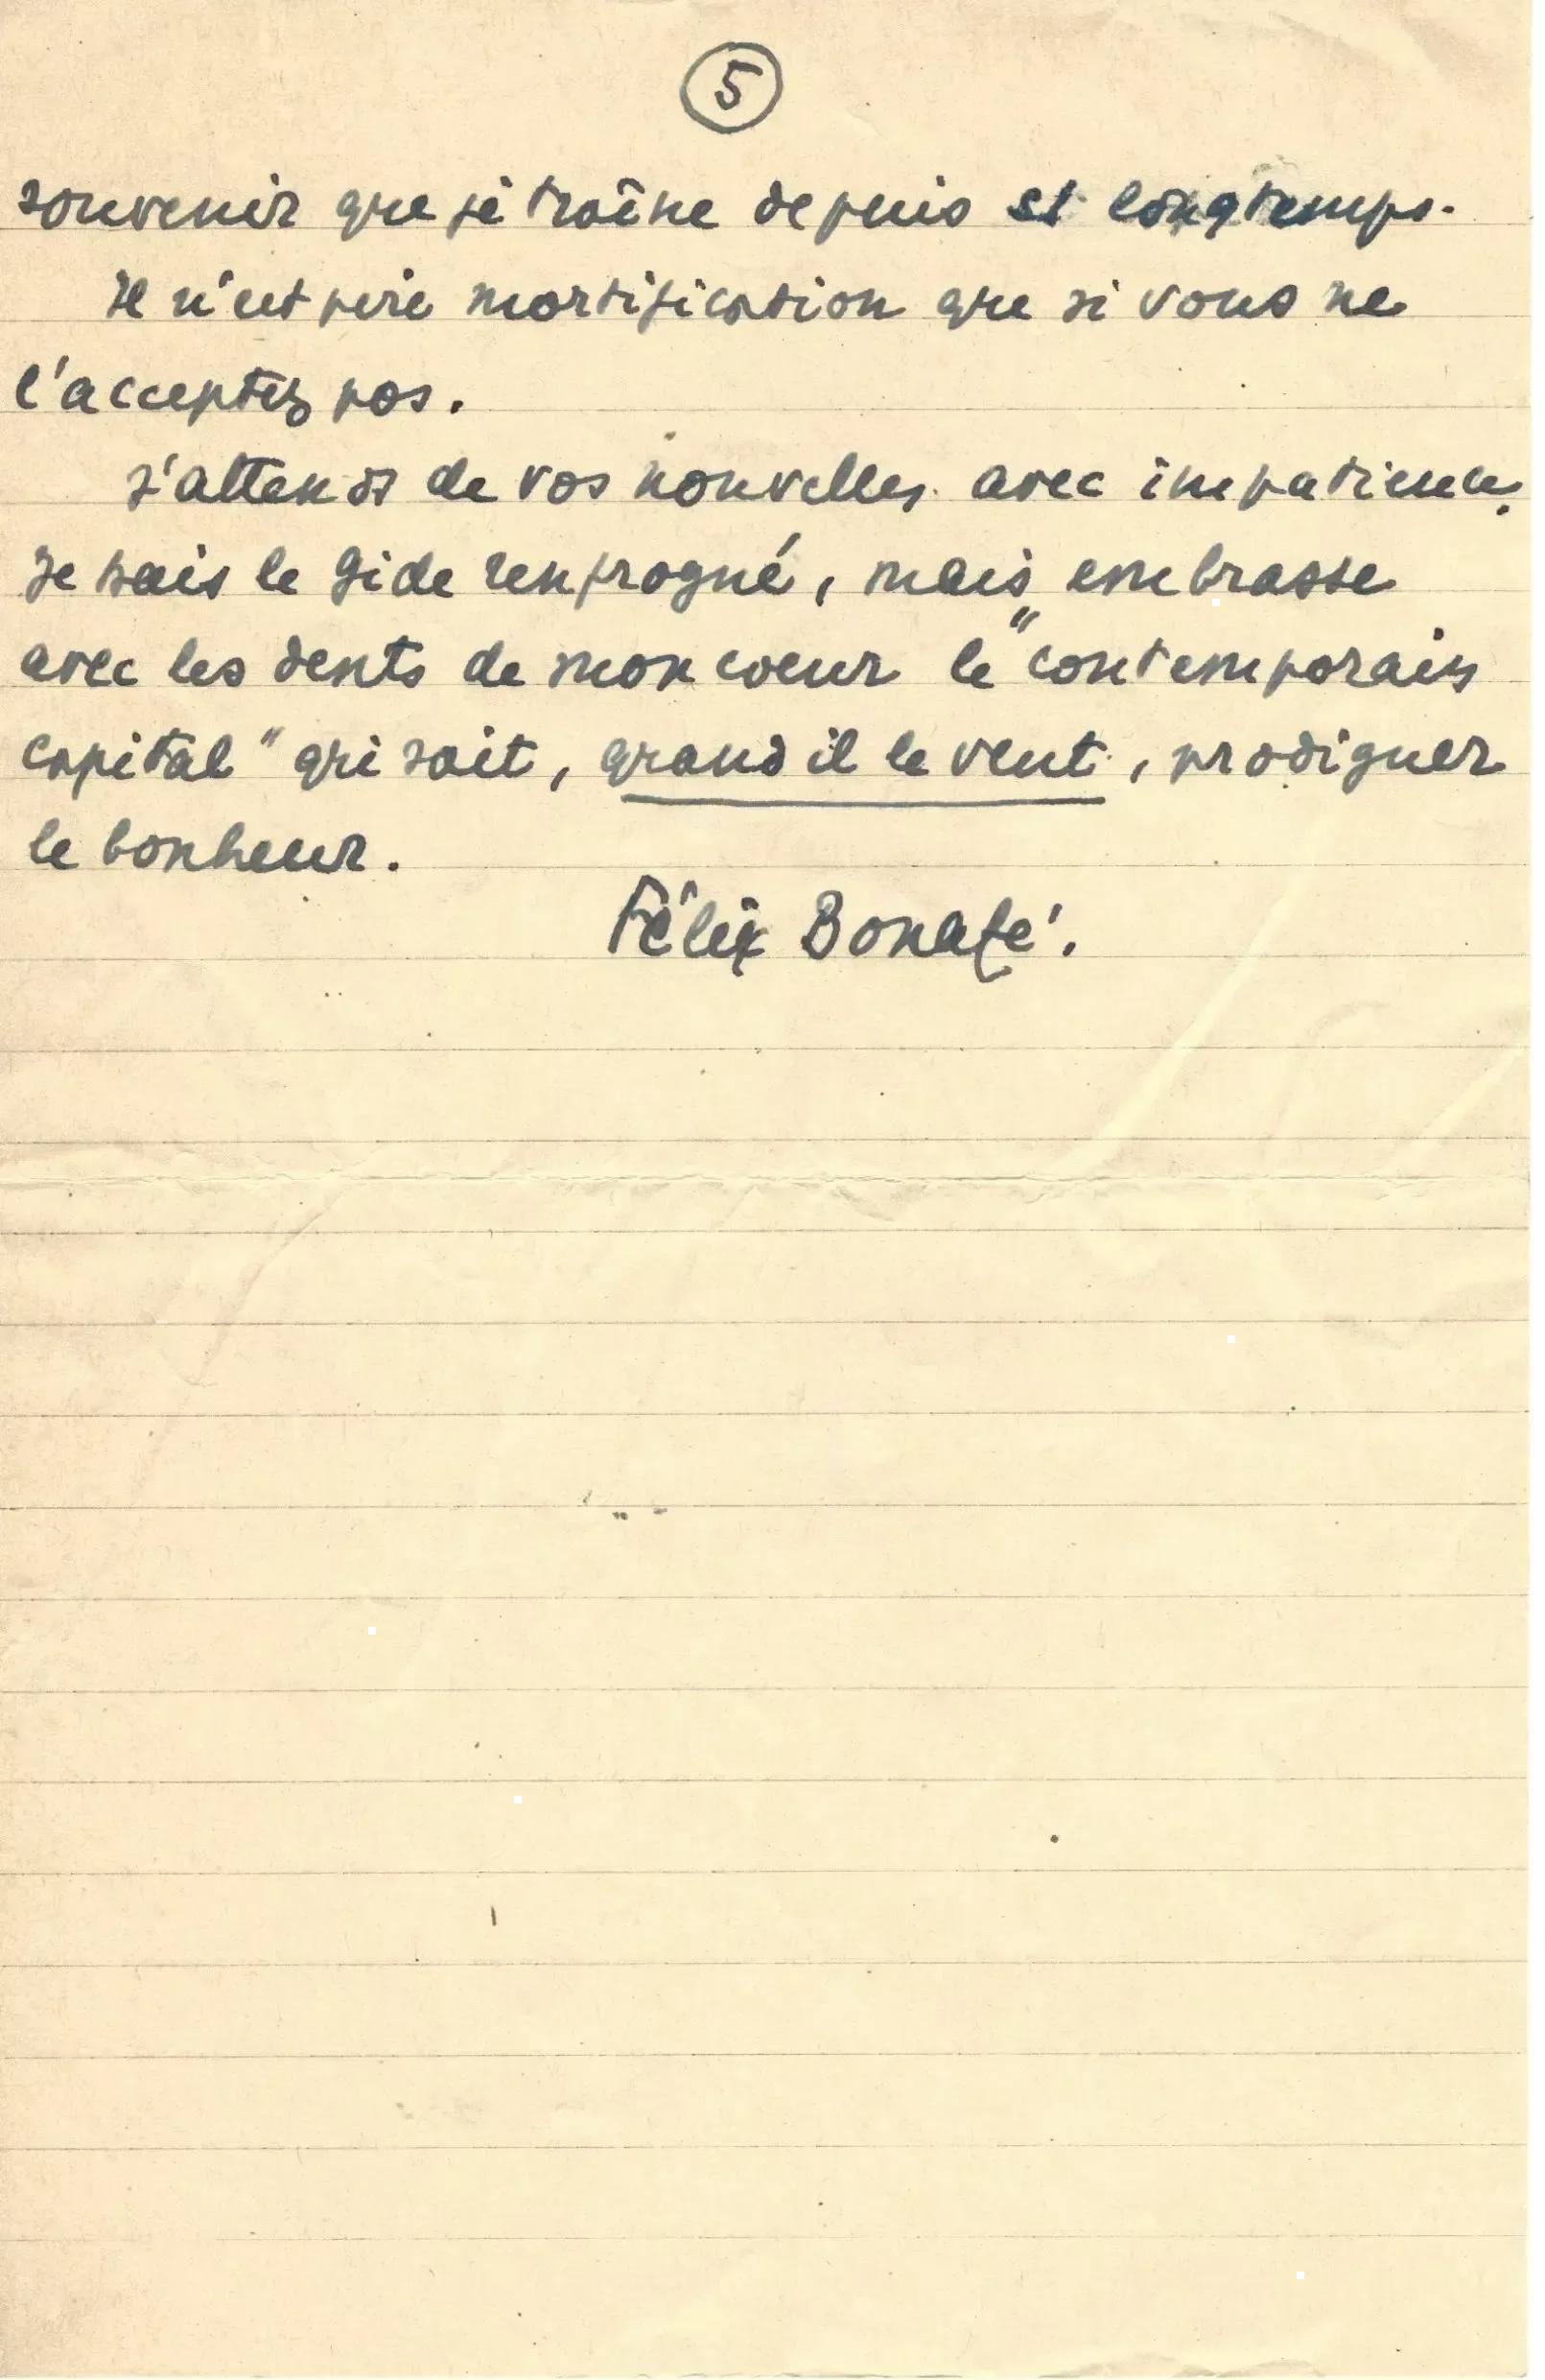 5
souvenir que je traîne depuis si longtemps.
Il n'est pire mortification que si vous ne
l'acceptez pas.
J'attends de vos nouvelles avec impatience.
Je sais le Gide renfrogné, mais embrasse
avec les dents de mon coeur le "contemporain
capital" qui sait, quand il le veut, prodiguer
le bonheur.
Félix Bonafé.